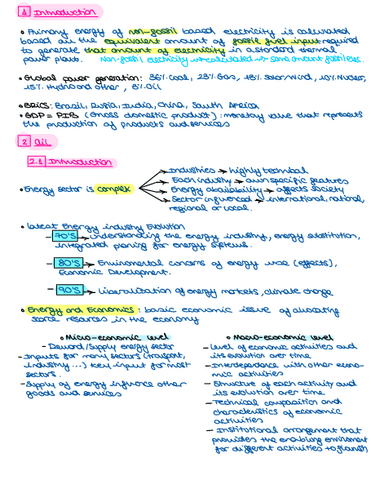 1 Introduction
• Primary energy of non-fossil based electricity is calculated
based on the equivalent amount of fossil fuel input required
to generate that amount of electricity in a standard thermal
power plant. Non-fossil electricity → calculated → same amount fossil elec.
• Global power generation: 36% Coal, 23% Gas, 15% Solar wind, 10% Nuclear,
15% Hydro and other, 3% Oil
• BRICS: Brazil, Russia, India, China, South Africa
• GDP = PIB (Gross domestic product): monetary value that represents
the production of products and services
2 Oil
2.1 Introduction
→ Industries → highly technical
→ Each industry → own specific features
• Energy sector is complex → Energy availability → affects society
→ Sector influenced → international, national,
regional or local.
• Latest Energy industry Evolution
70's → Understanding the energy industry, energy substitution,
integrated planing for energy systems.
80's → Enviromental concerns of energy use (effects),
Economic Development.
90's → Liberalization of energy markets, climate change
• Energy and Economics: basic economic issue of allocating
scarce resources in the economy
• Micro-economic level
- Demand/Supply energy sector
- Inputs for many sectors (transport,
industry ...) key-input for most
sectors.
- Supply of energy influence other
goods and services
• Macro-economic level
- Level of economic activities and
its evolution over time
- Interdependence with other econo-
mic activities
- Structure of each activity and
its evolution over time
- Technical composition and
characteristics of economic
activities
- Institutional arrangement that
provides the enabling enviroment
for different activities to flourish